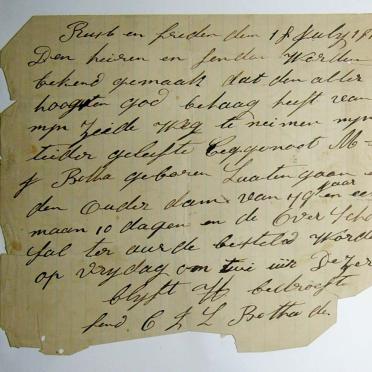 Rust en freden den 18 July 18
Den heiren en Word
bekend gemaak dat den aller
hoogsten god behaag heeft van
mijn Zeide Weg te neimen mijn
teider geleifte Eggenoot M
J Botha geboren Luaten gaan
den Ouder dam van 79 jaar en een
maan 10 dagen en de Over Scho
fal ter aurde besteld Worde
op Vrydag om twi uir Dezer
blyft U bedroefte
C L L Botha